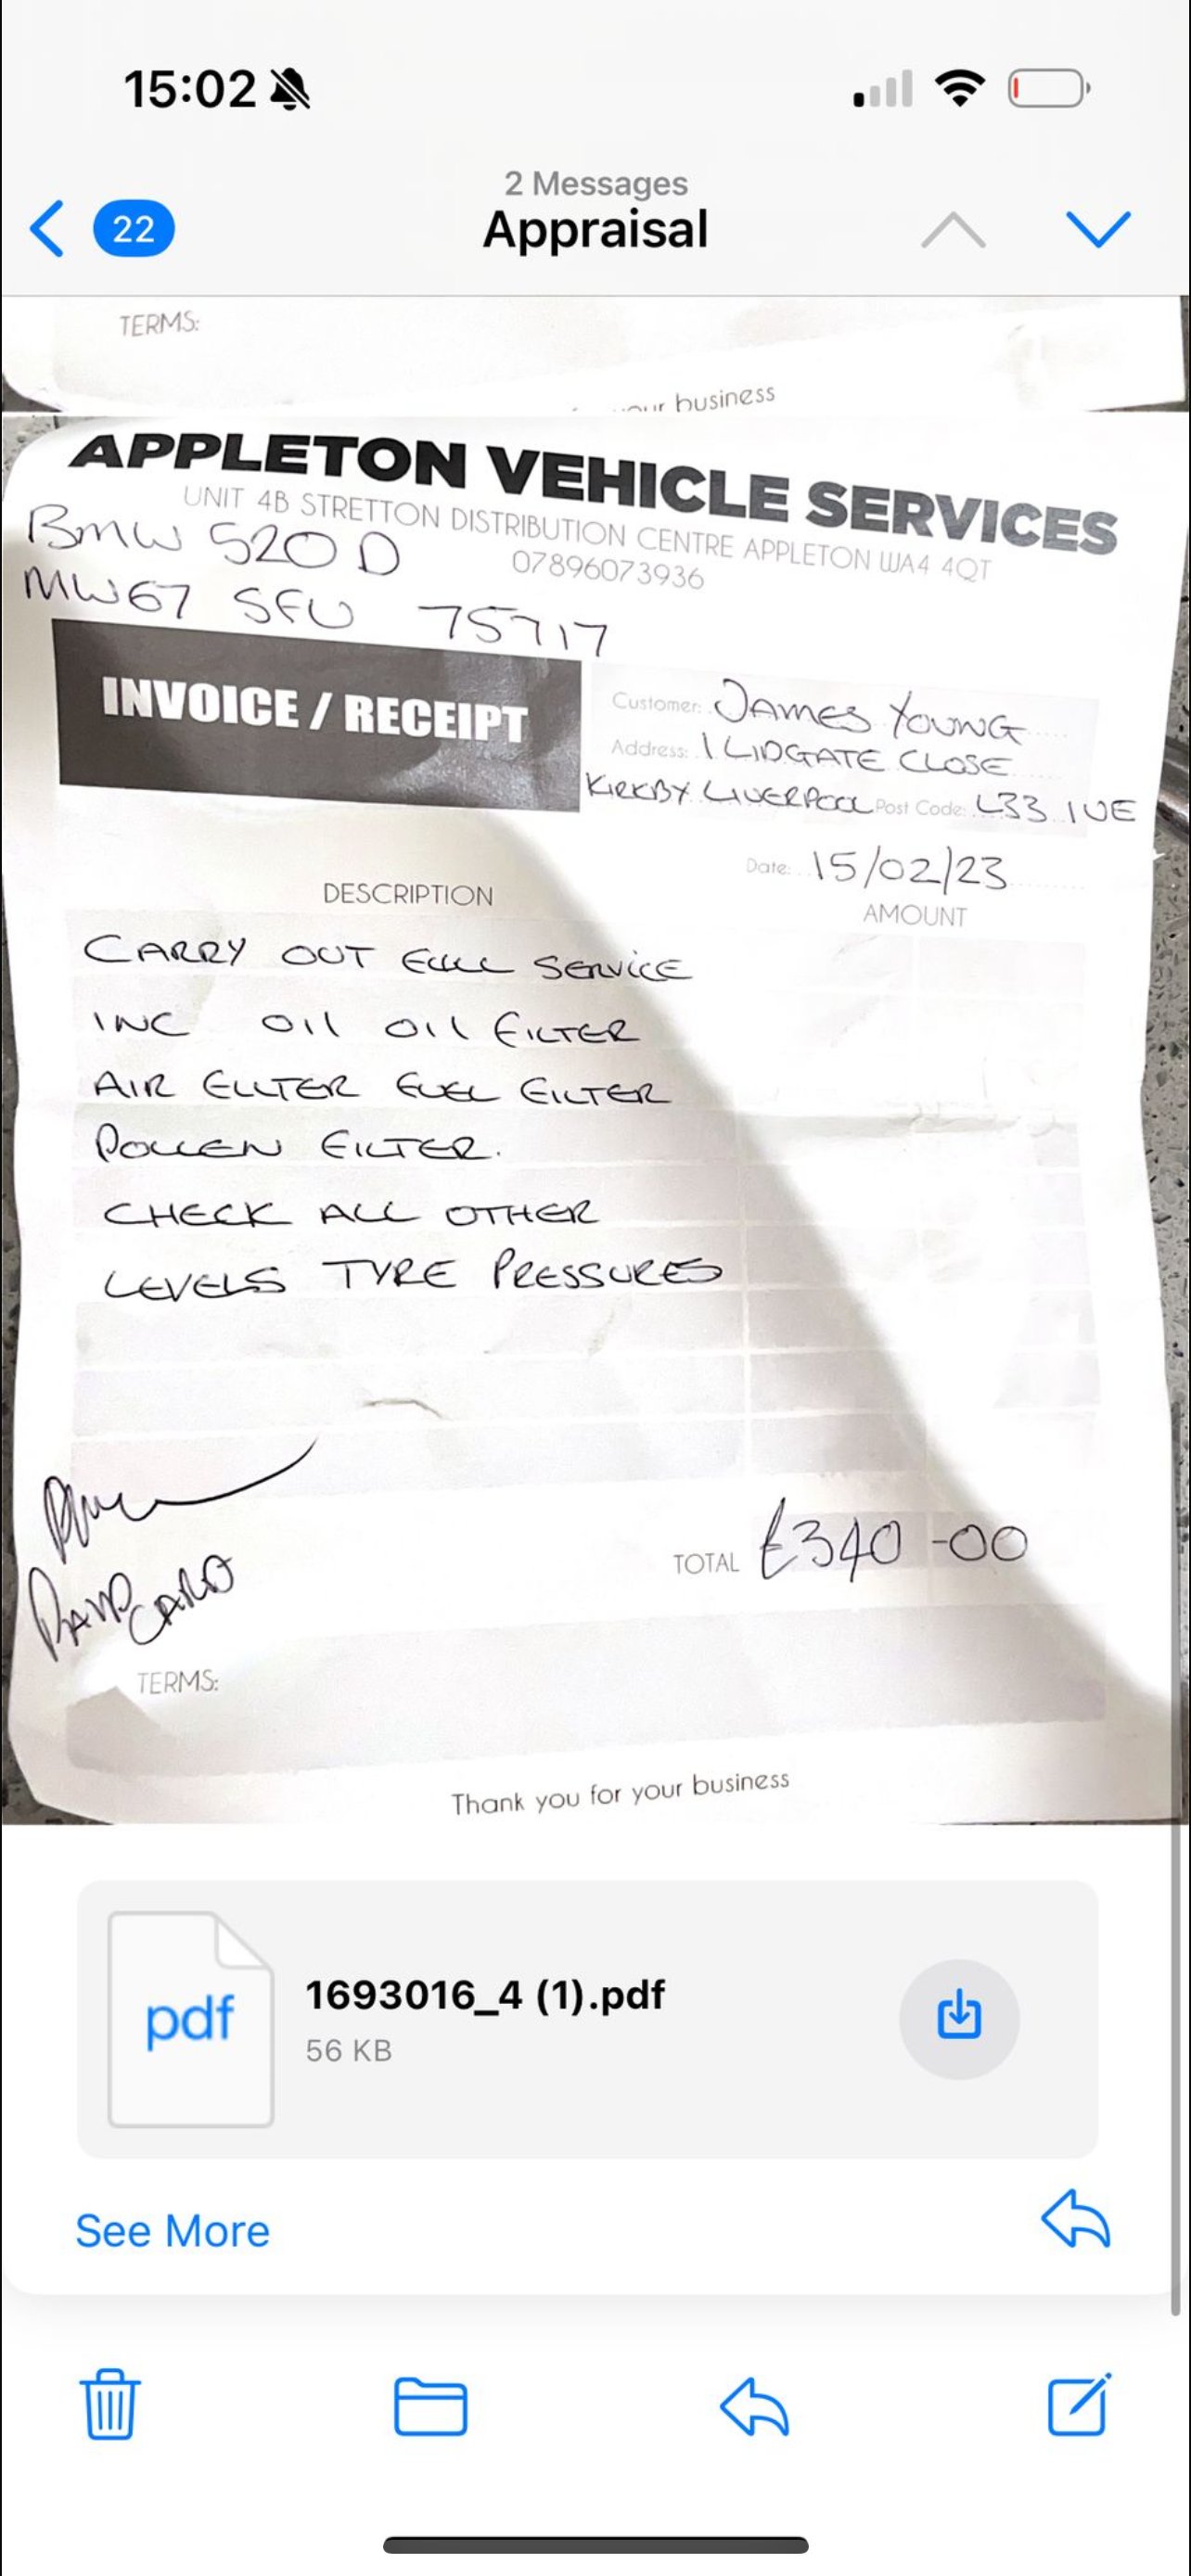 15:02
2 Messages
22
Appraisal
TERMS:
your business
APPLETON VEHICLE SERVICES
UNIT 4B STRETTON DISTRIBUTION CENTRE APPLETON WA4 4QT
07896073936
BMW 520 D
MW67 SFU 75717
INVOICE / RECEIPT
Customer: JAMES YOUNG
Address: 1 LIDGATE CLOSE
KIRKBY LIVERPOOL Post Code: L33 1UE
Date: 15/02/23
DESCRIPTION
AMOUNT
CARRY OUT FULL SERVICE
INC OIL OIL FILTER
AIR FILTER FUEL FILTER
POLLEN FILTER.
CHECK ALL OTHER
LEVELS TYRE PRESSURES
TOTAL £340-00
PAID CARD
TERMS:
Thank you for your business
pdf
1693016_4 (1).pdf
56 KB
See More